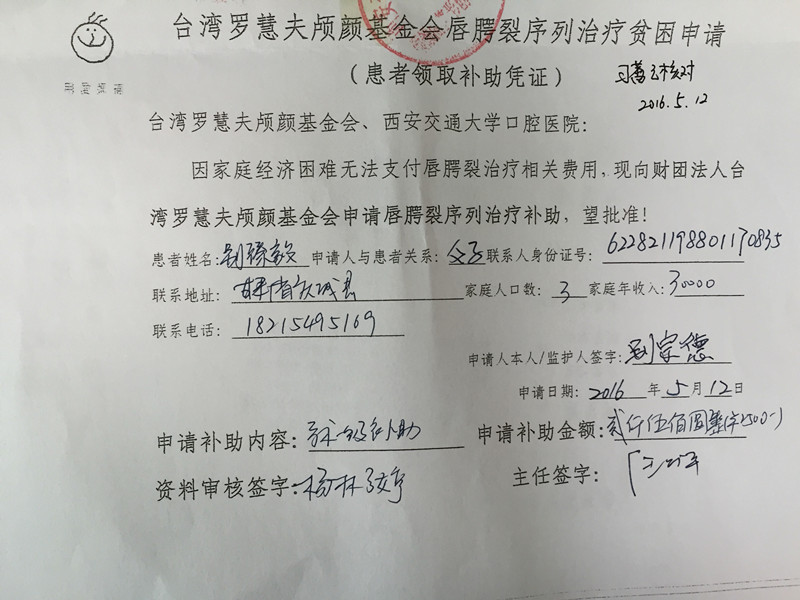 台湾罗慧夫颅颜基金会唇腭裂序列治疗贫困申请
(患者领取补助凭证)
核对
2016.5.12
台湾罗慧夫颅颜基金会、西安交通大学口腔医院:
因家庭经济困难无法支付唇腭裂治疗相关费用,现向财团法人台
湾罗慧夫颅颜基金会申请唇腭裂序列治疗补助,望批准!
患者姓名: 申请人与患者关系:父子 联系人身份证号:622821198801170835
联系地址:甘肃省庆城县 家庭人口数:3 家庭年收入:30000
联系电话:18215495169
申请人本人/监护人签字:刘宗德
申请日期:2016年5月12日
申请补助内容:手术补助 申请补助金额:贰仟伍佰圆整(2500-)
资料审核签字:杨林 主任签字: